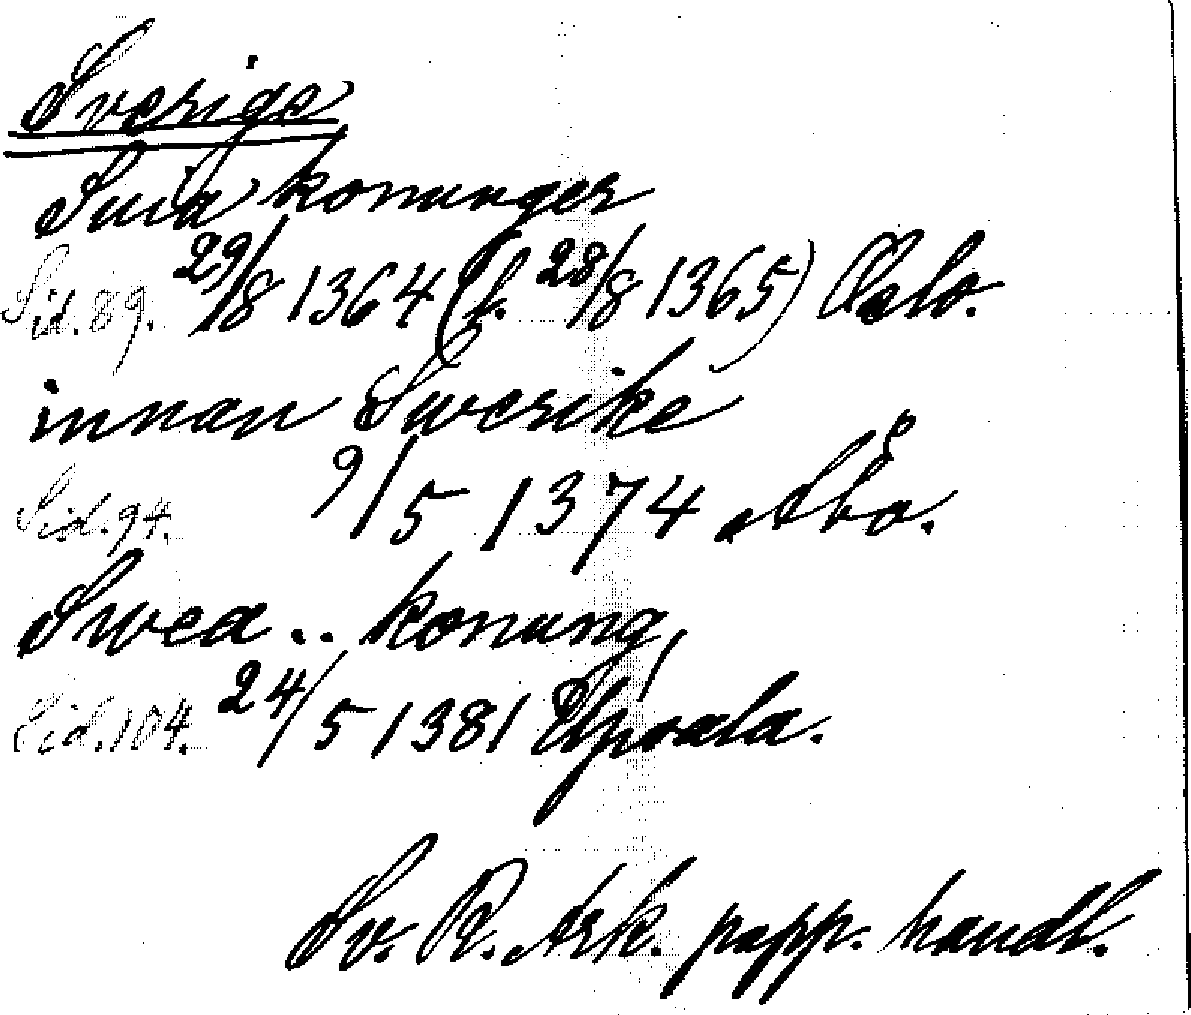 Sverige
Suia konunger
Sid. 89. 29/8 1364 (f. 28/8 1365) Oslo.
innan Swerike
Sid. 94. 9/5 1374 Åbo.
Swea .. konung,
Sid. 104. 24/5 1381 Upsala.
Sv. R. Ark. papp. handl.